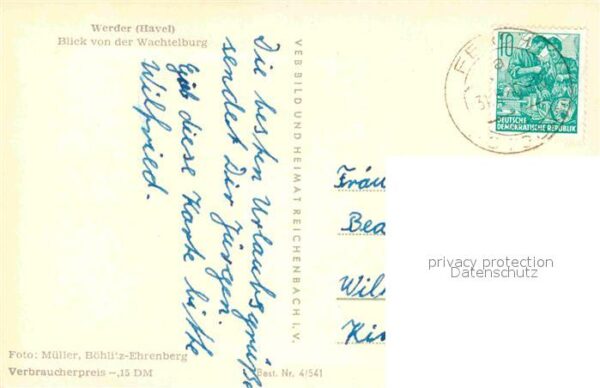 Werder (Havel)
Blick von der Wachtelburg
Die besten Urlaubsgrüße
sendet Dir Jürgen.
Gib diese Karte bitte
Wilfried.
VEB BILD UND HEIMAT REICHENBACH I. V.
10
DEUTSCHE
DEMOKRATISCHE REPUBLIK
Fräu
Bea
Wil
Kir
privacy protection
Datenschutz
Foto: Müller, Böhlitz-Ehrenberg
Verbraucherpreis –,15 DM
Best. Nr. 4/541